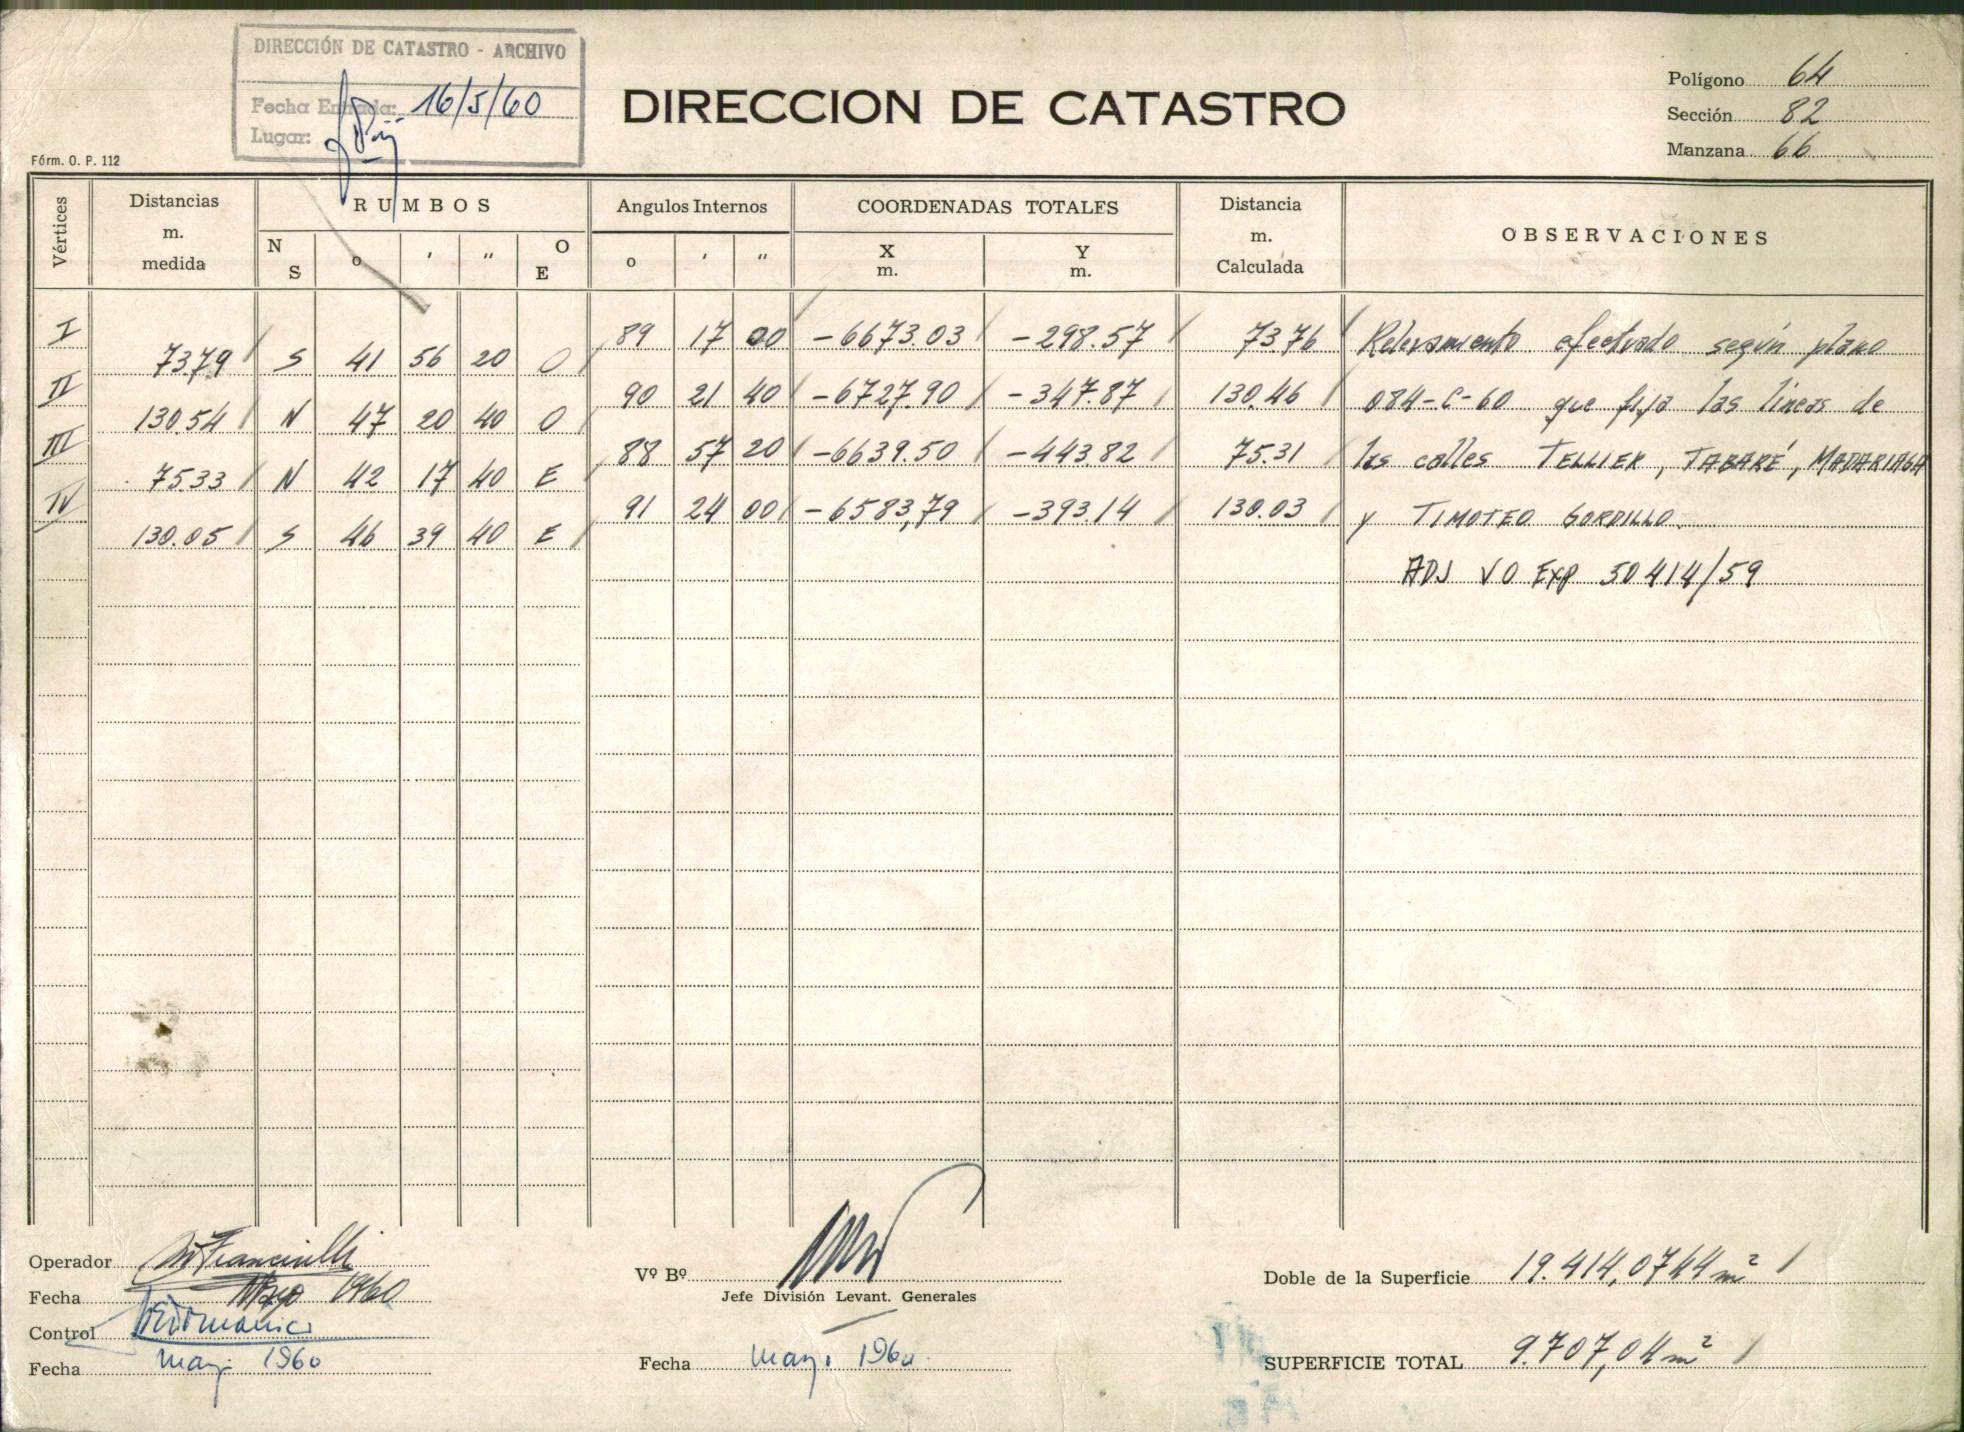 DIRECCIÓN DE CATASTRO - ARCHIVO
Fecha Entrada: 16/5/60
Lugar:
DIRECCION DE CATASTRO
Polígono 64
Sección 82
Manzana 66
Fórm. O. P. 112
Vértices
Distancias m. medida
RUMBOS
N S o ' " O E
Angulos Internos
o ' "
COORDENADAS TOTALES
X m. Y m.
Distancia m. Calculada
OBSERVACIONES
I 89 17 00 -6673.03 -298.57 73.76 Relevamiento efectuado según plano
73.79 S 41 56 20 O
II 90 21 40 -6727.90 -347.87 130.46 084-C-60 que fija las líneas de
130.54 N 47 20 40 O
III 88 57 20 -6639.50 -443.82 75.31 las calles TELLIER, TABARÉ, MADARIAGA
75.33 N 42 17 40 E
IV 91 24 00 -6583,79 -393.14 130.03 y TIMOTEO GORDILLO.
130.05 S 46 39 40 E
ADJ VO EXP 50414/59
Operador
Fecha Mayo 1960
Control
Fecha mayo 1960
Vº Bº
Jefe División Levant. Generales
Fecha mayo 1960
Doble de la Superficie 19.414,0744 m²
SUPERFICIE TOTAL 9.707,04 m²